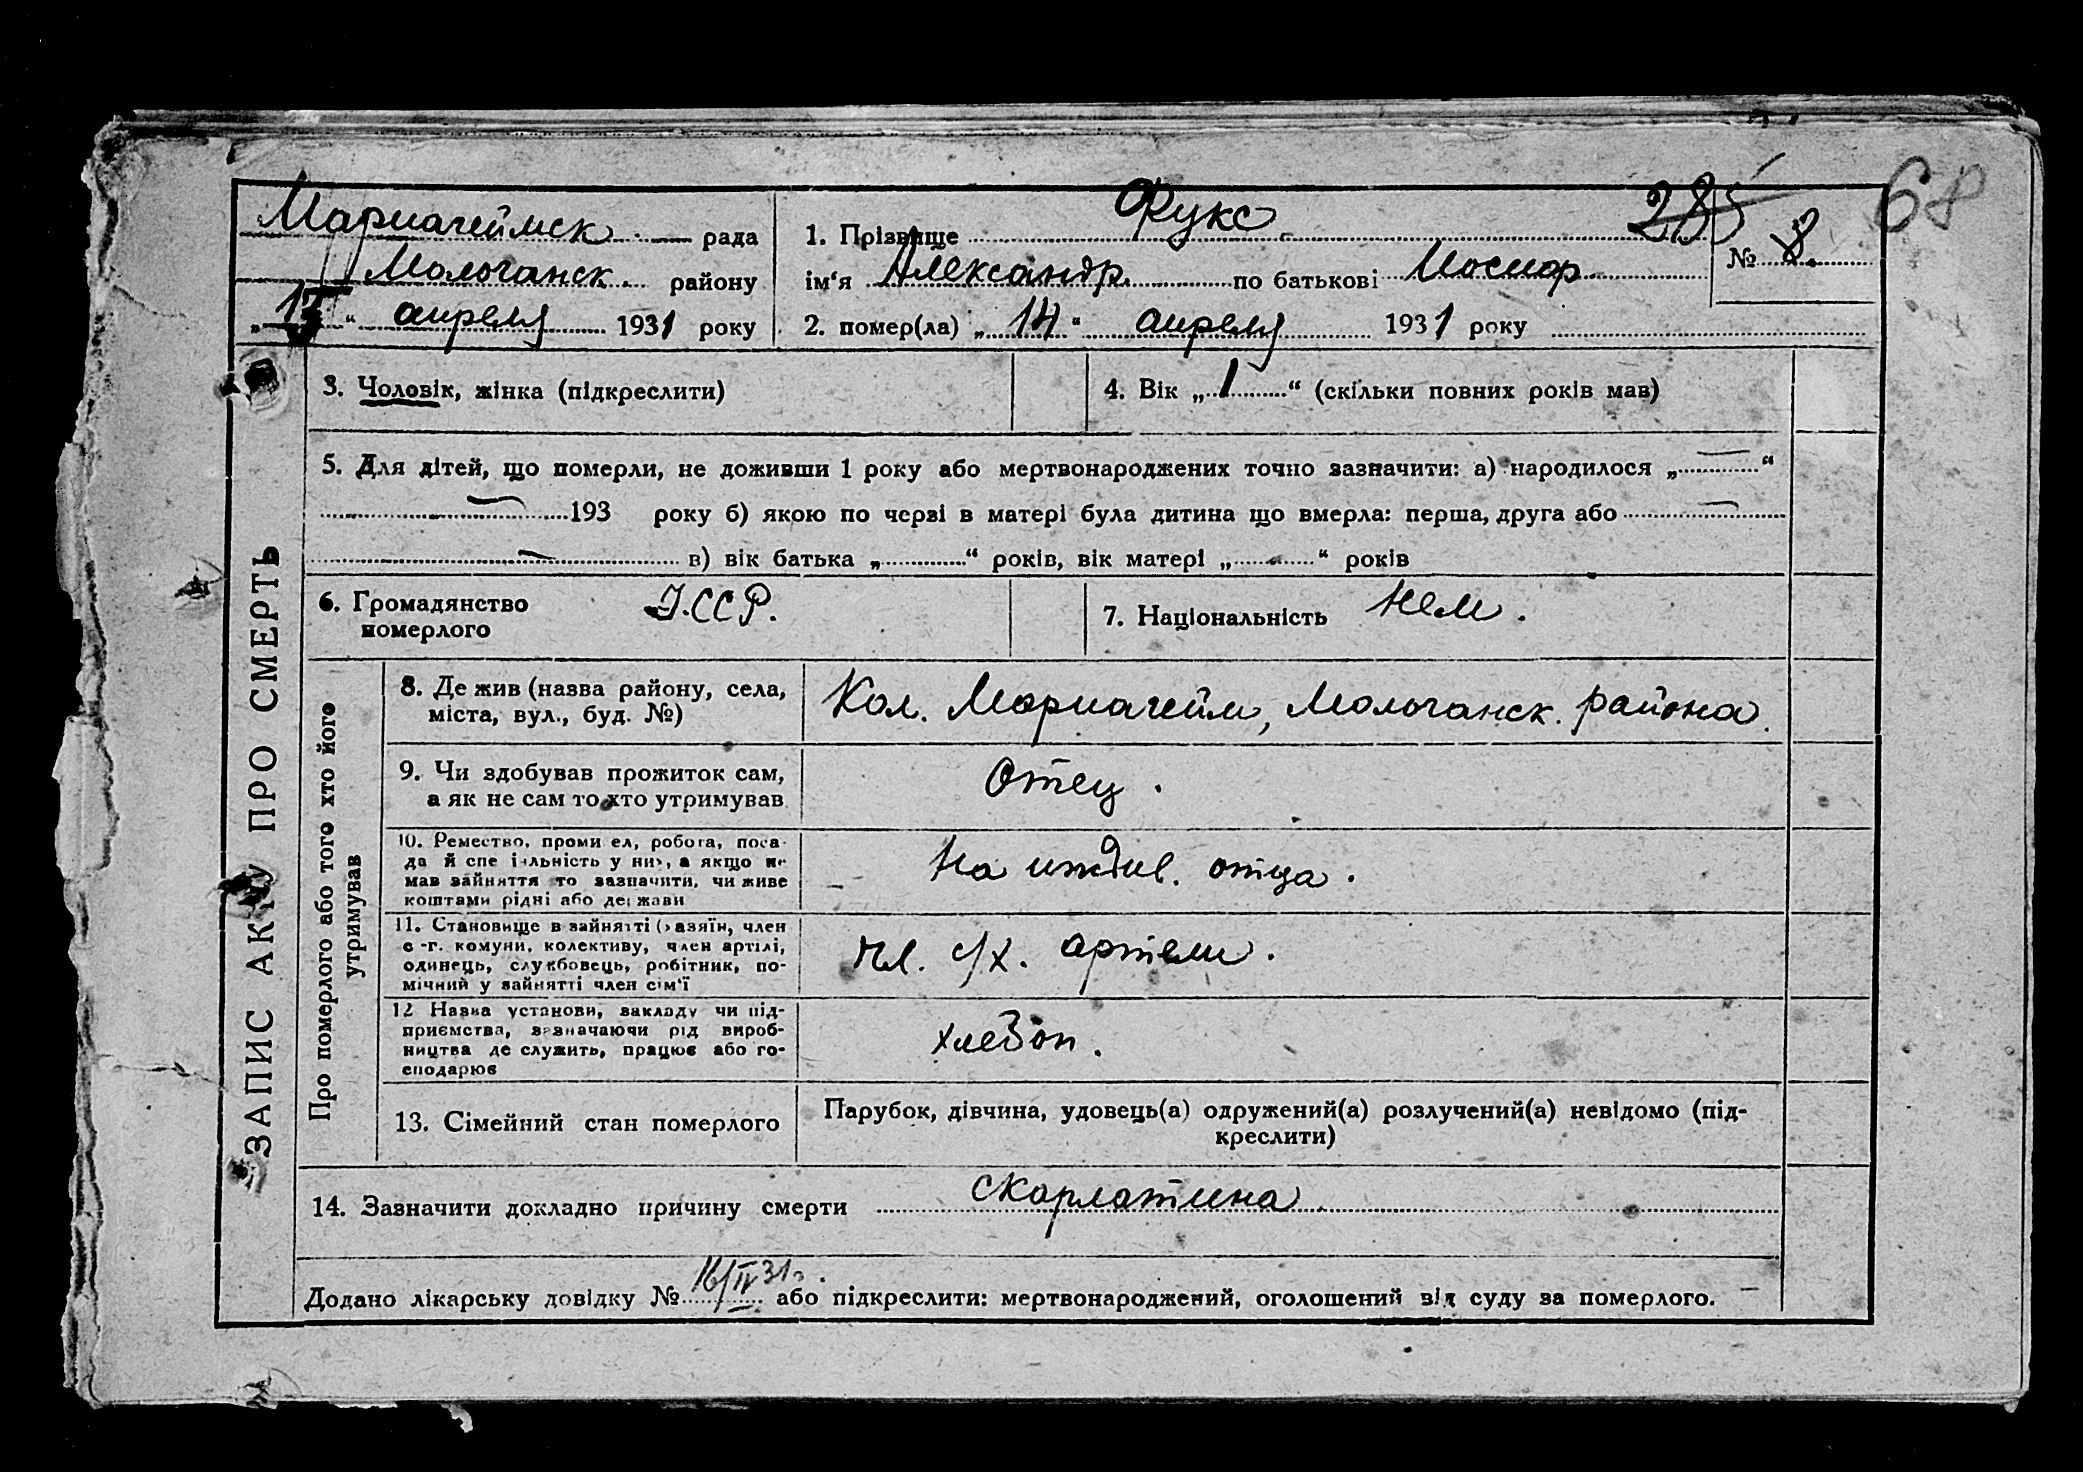 68
285
Мариагеймск. рада
Молочанск. району
„17“ апреля 1931 року
1. Прізвище Фукс
№ 8.
ім‘я Александр. по батькові Иосиф
2. помер(ла) „14“ апреля 1931 року
3. Чоловік, жінка (підкреслити)
4. Вік „1“ (скільки повних років мав)
5. Для дітей, що померли, не доживши 1 року або мертвонароджених точно зазначити: а) народилося „—“
— 193 року б) якою по черзі в матері була дитина що вмерла: перша, друга або —
— в) вік батька „ “ років, вік матері „ “ років
6. Громадянство
померлого
У.ССР.
7. Національність Нем.
ЗАПИС АКТУ ПРО СМЕРТЬ
Про померлого або того хто його
утримував
8. Де жив (назва району, села,
міста, вул., буд. №)
Кол. Мариагейм, Молочанск. района.
9. Чи здобував прожиток сам,
а як не сам то хто утримував
Отец.
10. Ремество, проми ел, робота, поса-
да й спе і льність у них, а якщо не
мав зайняття то зазначити, чи живе
коштами рідні або держави
На иждив. отца.
11. Становище в зайнятті (хазяїн, член
с -г. комуни, колективу, член артілі,
одинець, службовець, робітник, по-
мічний у зайнятті член сім‘ї
Чл. с/х. артели.
12 Назва установи, закладу чи під-
приємства, зазначаючи рід вироб-
ництва де служить, працює або го-
сподарює
хлебоп.
13. Сімейний стан померлого
Парубок, дівчина, удовець(а) одружений(а) розлучений(а) невідомо (під-
креслити)
14. Зазначити докладно причину смерти скарлатина.
Додано лікарську довідку № 16/IV 31г. або підкреслити: мертвонароджений, оголошений від суду за померлого.